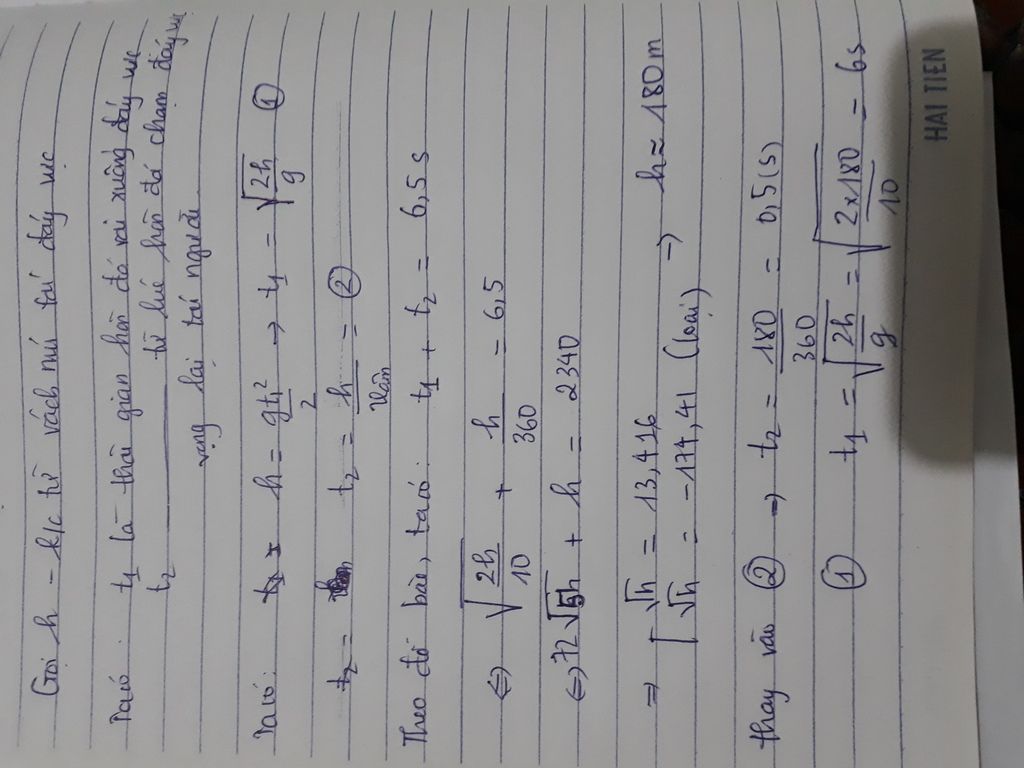 Gọi h - k/c từ vách núi tới đáy vực
Ta có: t₁ là thời gian hòn đá rơi xuống đáy vực
t₂ ——— từ lúc hòn đá chạm đáy vực
vọng lại tới người
Ta có: h = gt₁²/2 → t₁ = √(2h/g) ①
t₂ = h/vâm = ②
Theo đề bài, ta có: t₁ + t₂ = 6,5s
⇔ √(2h/10) + h/360 = 6,5
⇔ 72√5h + h = 2340
⇒ [ √h = 13,416 → h ≈ 180m
√h = -174,41 (loại)
thay vào ② → t₂ = 180/360 = 0,5(s)
① t₁ = √(2h/g) = √(2x180/10) = 6s
HAI TIEN